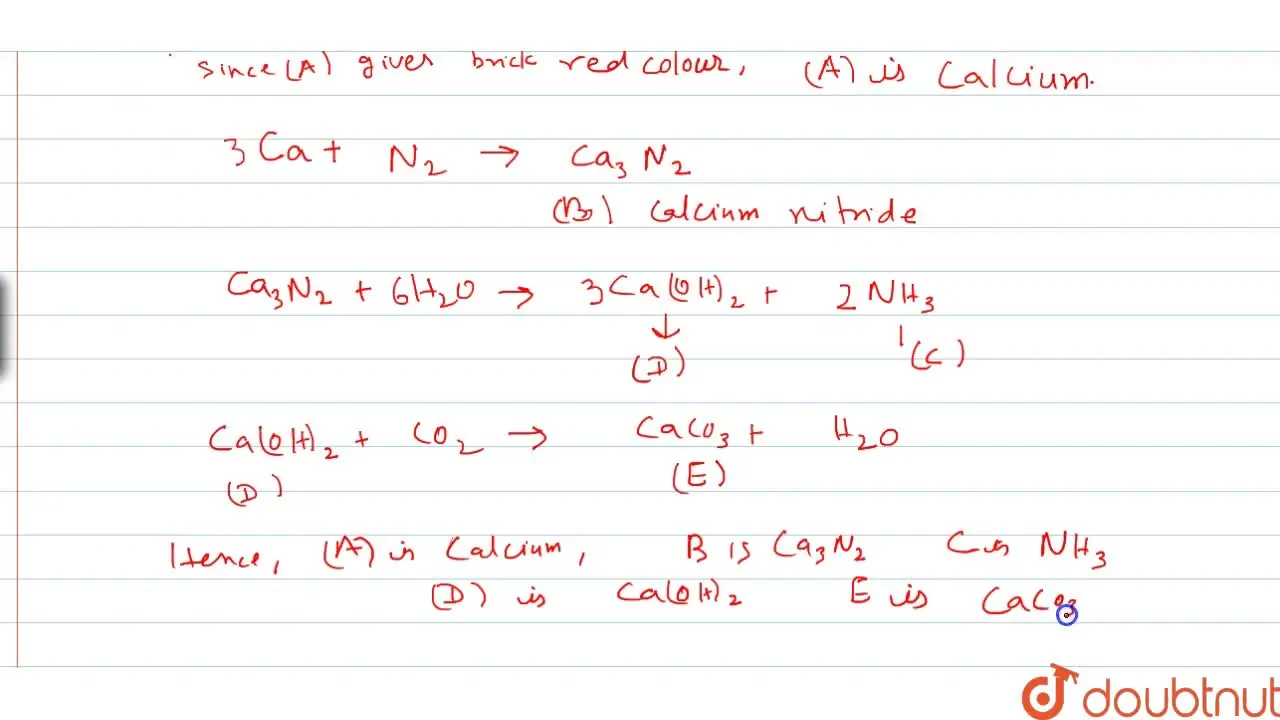 Since (A) gives brick red colour, (A) is Calcium.
3 Ca + N2 → Ca3 N2
(B) Calcium nitride
Ca3N2 + 6H2O → 3Ca(OH)2 + 2NH3
(D) (C)
Ca(OH)2 + CO2 → CaCO3 + H2O
(D) (E)
Hence, (A) is Calcium, B is Ca3N2 C is NH3
(D) is Ca(OH)2 E is CaCO3
doubtnut